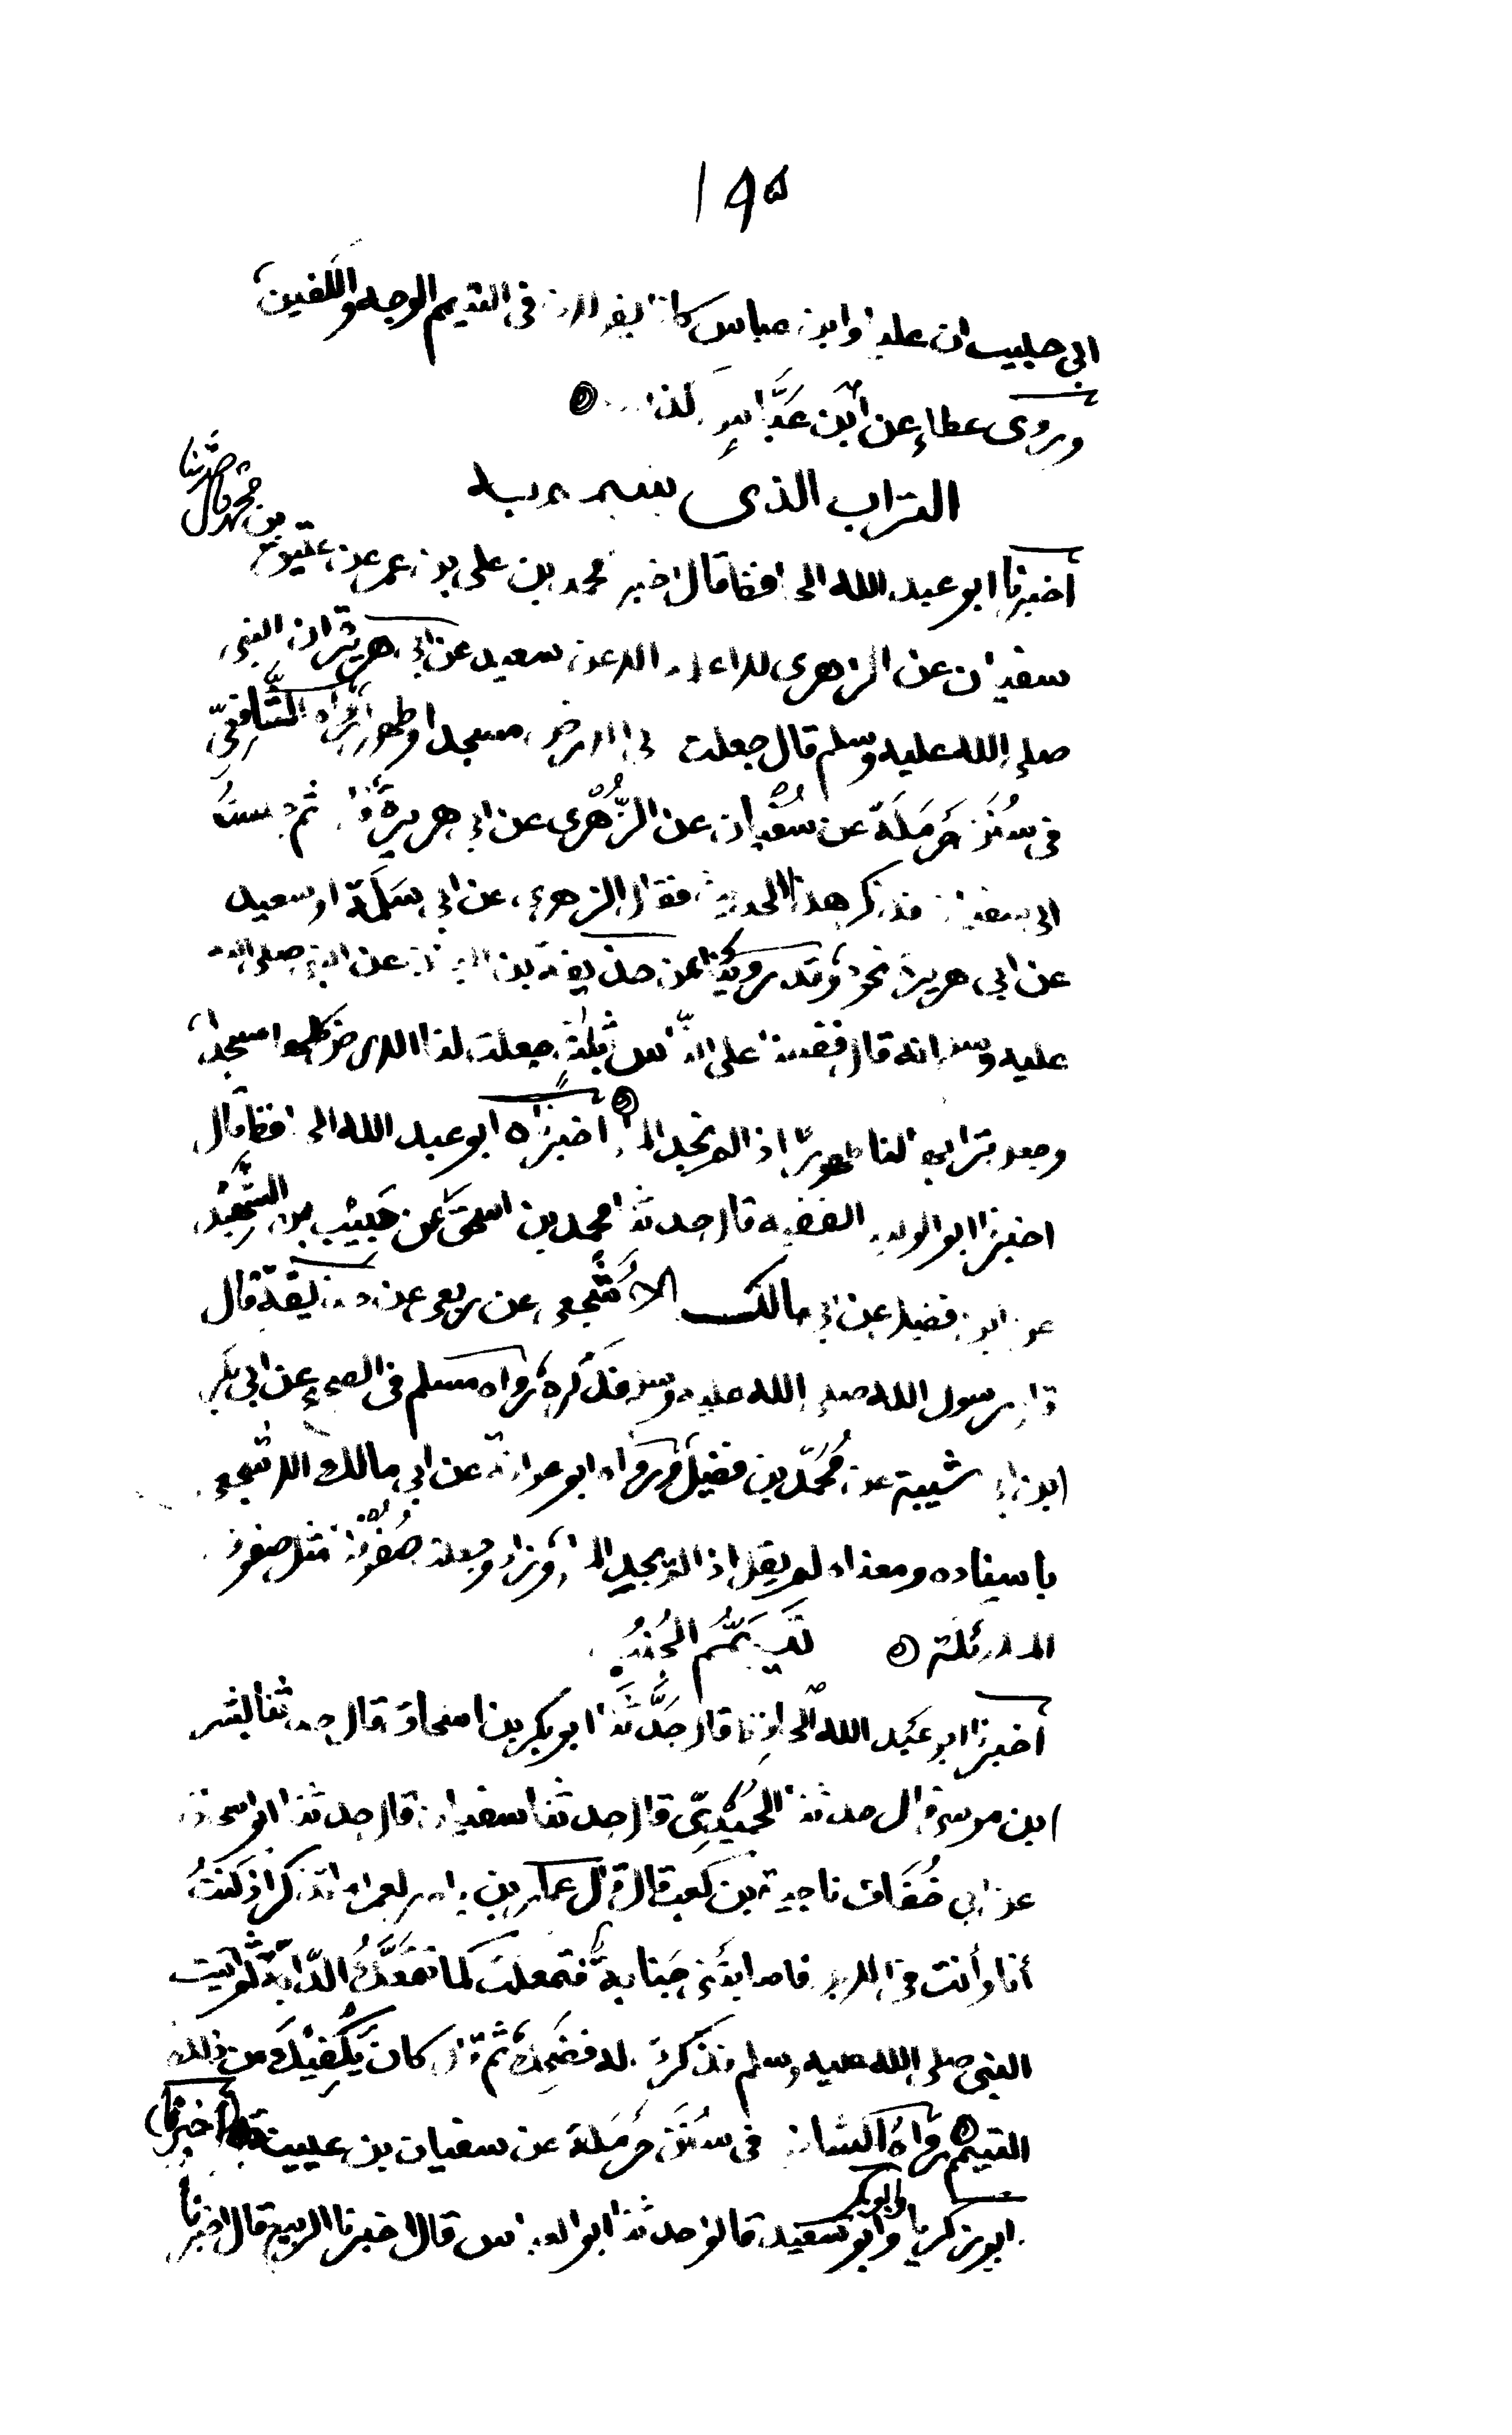 ١٩٥
ابي حبيب ان عليا وابن عباس كانا يقولان في التيمم الوجه والكفين
وروى عطاء عن ابن عَبَّاسٍ
التراب الذي يتيمم به
أخبرنا ابو عبد الله الحافظ قال اخبرنا محمد بن علي بن عمر عن
حدثنا
بن محمد قال
سفيان عن الزهري عن سعيد عن ابي هريرة ان النبي
صلى الله عليه وسلم قال جعلت لي الارض مسجدا وطهورا رواه الشافعي
في سُنَن حَرمَلَة عن سُفْيان عن الزُّهْري عن ابي هريرة ثم جلست
الى سفيان فذكر هذا الحديث فقال الزهري عن ابي سَلَمَة او سعيد
عن ابي هريرة نحوه وقد روينا عن حذيفة بن اليمان عن النبي صلى الله
عليه وسلم انه قال فضلنا على الناس بثلاث جعلت لنا الارض كلها مسجدا
وجعل ترابها لنا طهورًا اذا لم نجد الماء أخبرناه ابو عبد الله الحافظ قال
اخبرنا ابو الوليد الفقيه قال حدثنا محمد بن اسحق عن حَبِيْب بن
عن ابن فضيل عن ابي مالك الأشجعي عن ربعي عن حذيفة قال
قال رسول الله صلى الله عليه وسلم فذكره رواه مسلم في الصحيح عن ابي بكر
ابن ابي شيبة عن مُحَمّد بن فضيل ورواه ابو عوانة عن ابي مالك الاشجعي
باسناده ومعناه لم يقل اذا لم نجد الماء وزاد وجعلت صُفُوْفُنا مثل صفوف
الملائكة تَيَمُّم الجُنُبِ
أخبرنا ابو عَبد الله الحافظ قال حَدَّثَنَا ابو بكر بن اسحاق قال حدثنا بشر
ابن موسى قال حدثنا الحميديّ قال حدثنا سفيان قال حدثنا ابو اسحاق
عن ابي خُفَاف ناجية بن كعب قال قال عمار بن ياسر لعمر اما تذكر اذ كنتُ
أنا وأنت في الابل فاصابتني جنابة فتمعكت كما تمعَّكُ الدّابة ثم اتيت
النبي صلى الله عليه وسلم فذكرت له فضحِك ثم قال كان يَكْفِيْكَ من ذلك
التيمم رواه الشافعي في سُنَن حَرمَلة عن سفيان بن عيينة (أخبرنا)
ابو زكريا وابو بكر وابو سَعيد قالوا حدثنا ابو العباس قال اخبرنا الربيع قال اخبرنا